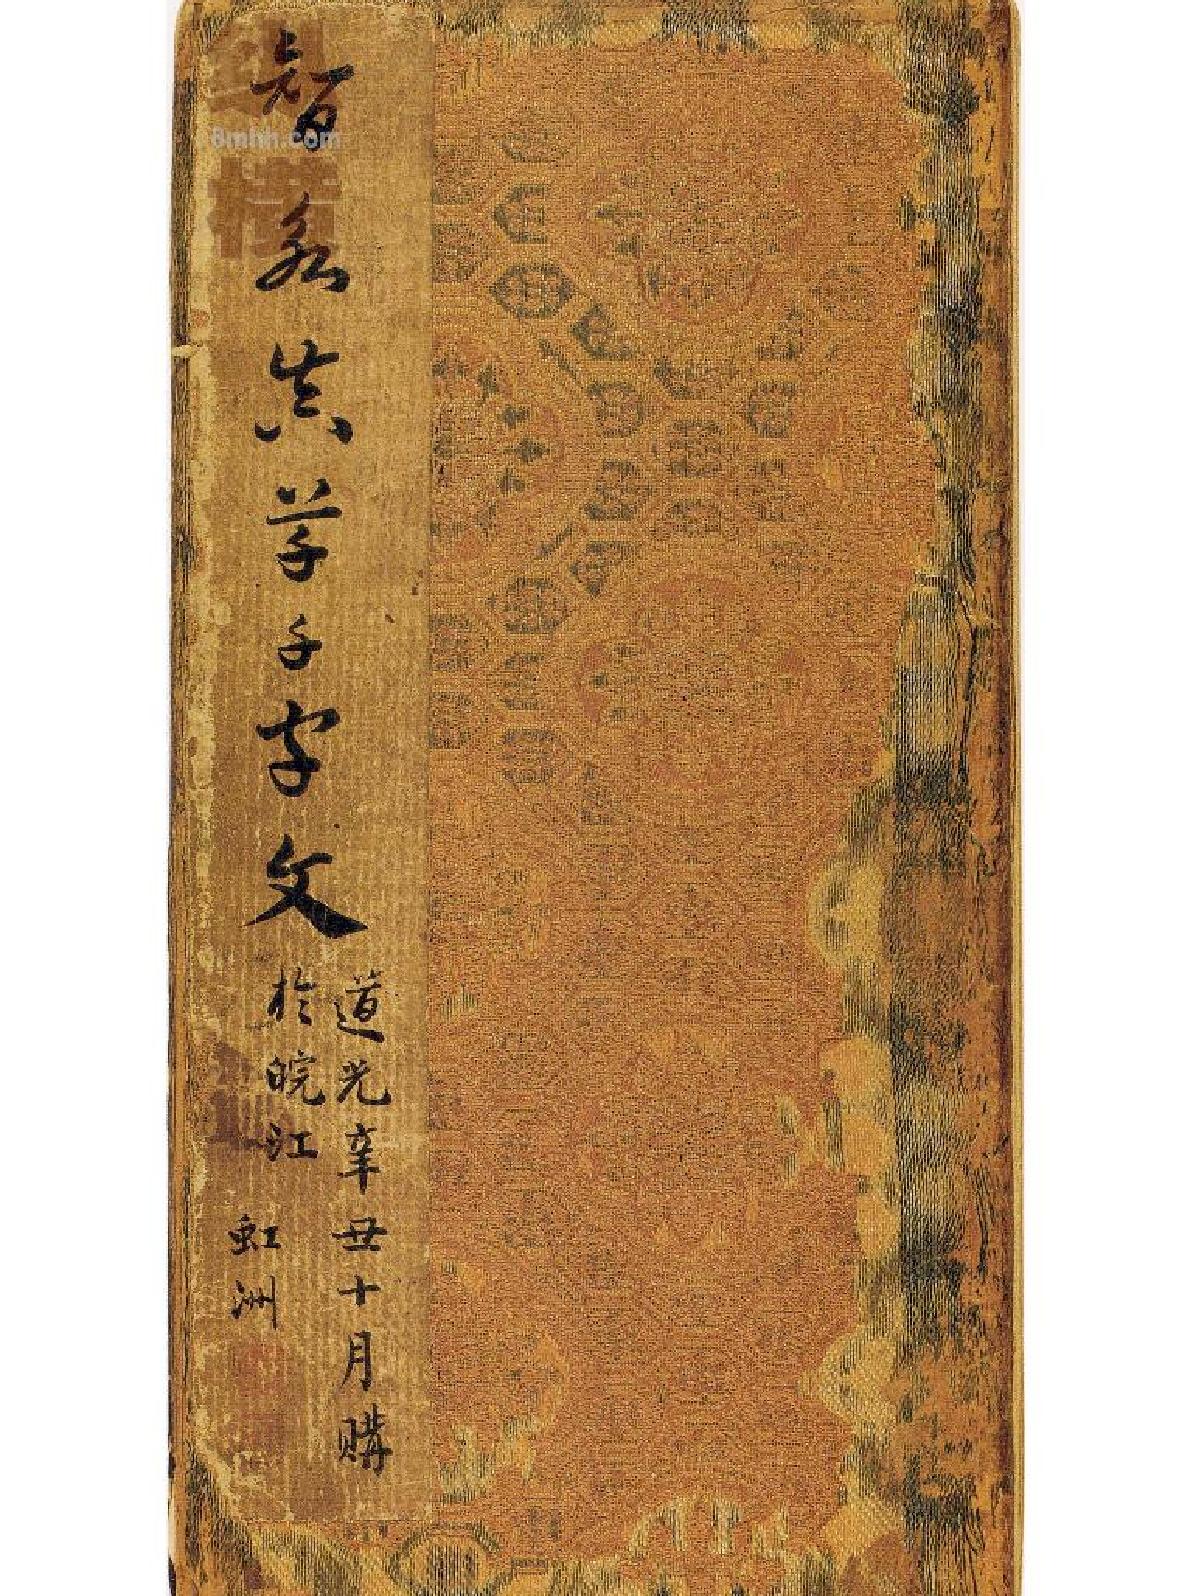 智永真草千字文
道光辛丑十月購
於皖江
虹洲
8mhh.com